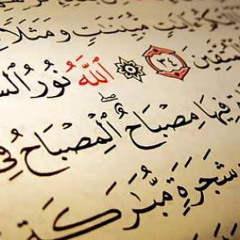 مُّبَيِّنَـٰتٍ وَمَثَلًا
ـتَّقِينَ ٣٤ ۞ ٱللَّهُ نُورُ ٱلسَّـ
فِيهَا مِصْبَاحٌ ۖ ٱلْمِصْبَاحُ فِى
شَجَرَةٍ مُّبَـٰرَكَةٍ